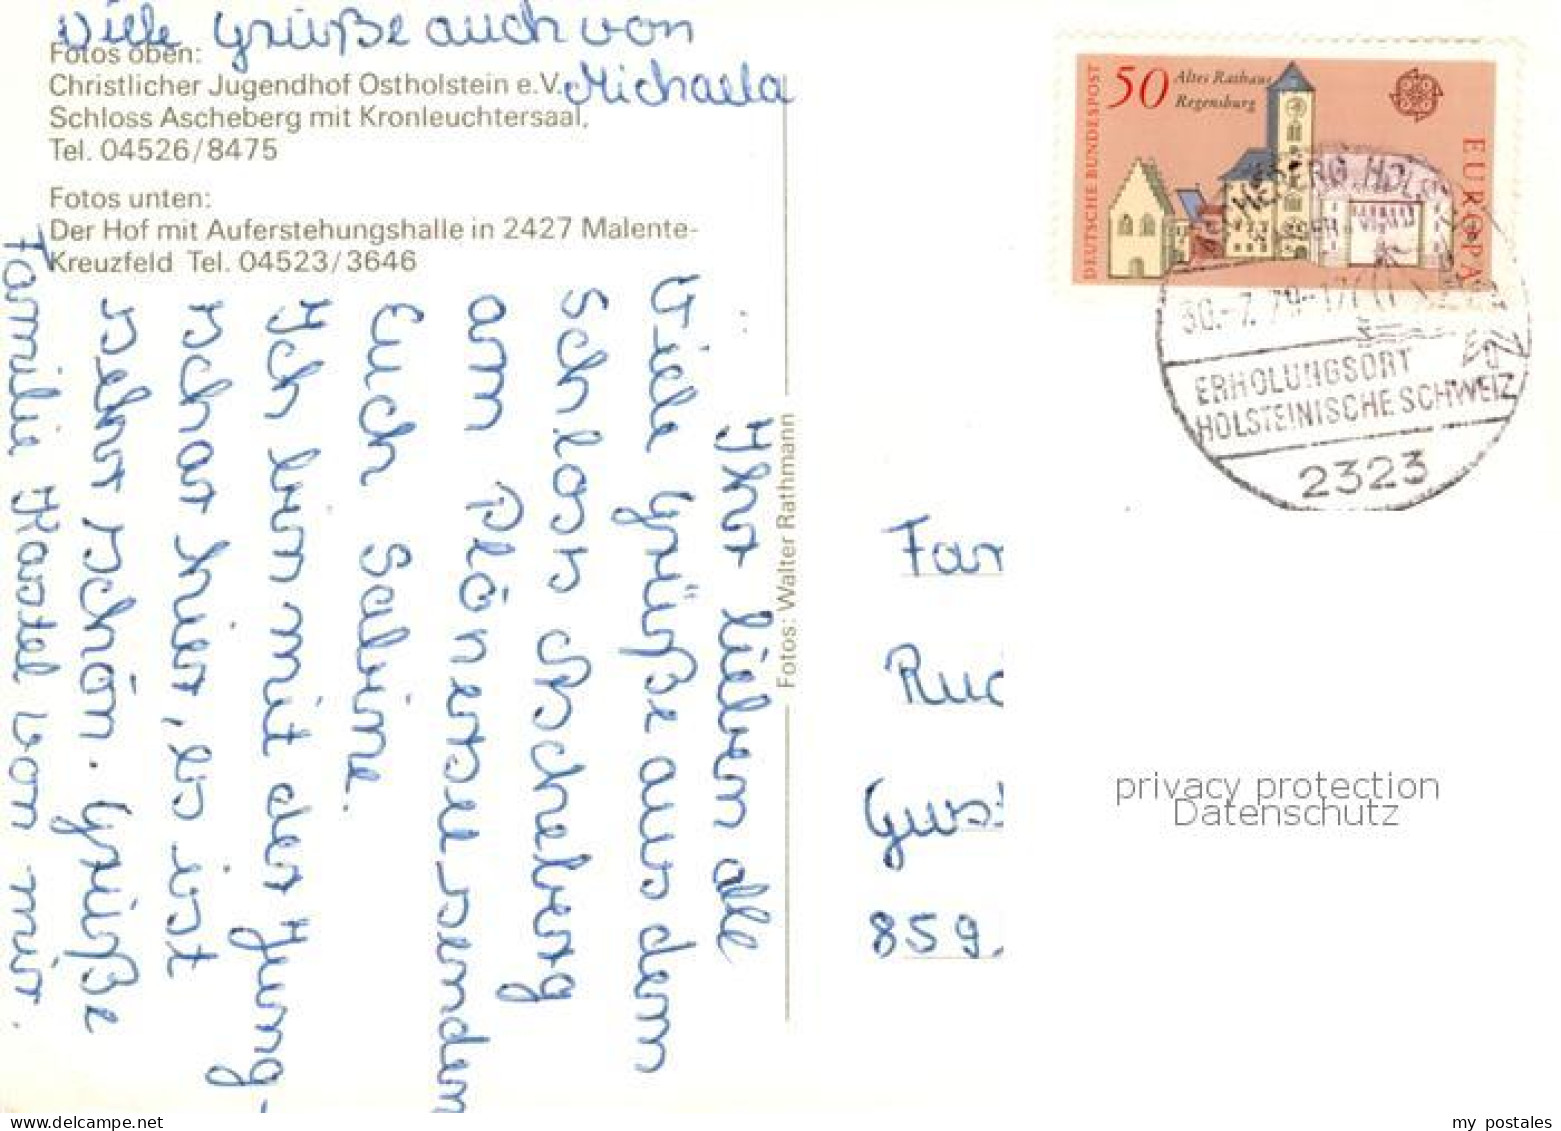 Viele Grüße auch von
Michaela
Fotos oben:
Christlicher Jugendhof Ostholstein e.V.
Schloss Ascheberg mit Kronleuchtersaal,
Tel. 04526/8475
Fotos unten:
Der Hof mit Auferstehungshalle in 2427 Malente-
Kreuzfeld Tel. 04523/3646
Ihr lieben alle
Viele Grüße aus dem
Schloss Ascheberg
am Plönersee senden
Euch Sabine.
Ich bin mit der Jung-
schar hier, es ist
sehr schön. Grüße
Familie Kastel von mir.
Fotos: Walter Rathmann
DEUTSCHE BUNDESPOST
50
Altes Rathaus
Regensburg
EUROPA
CHEBERG HOLST
30.-7.79.-17
ERHOLUNGSORT
HOLSTEINISCHE SCHWEIZ
2323
Fam
Rud
Gus
859
privacy protection
Datenschutz
www.delcampe.net
my_postales